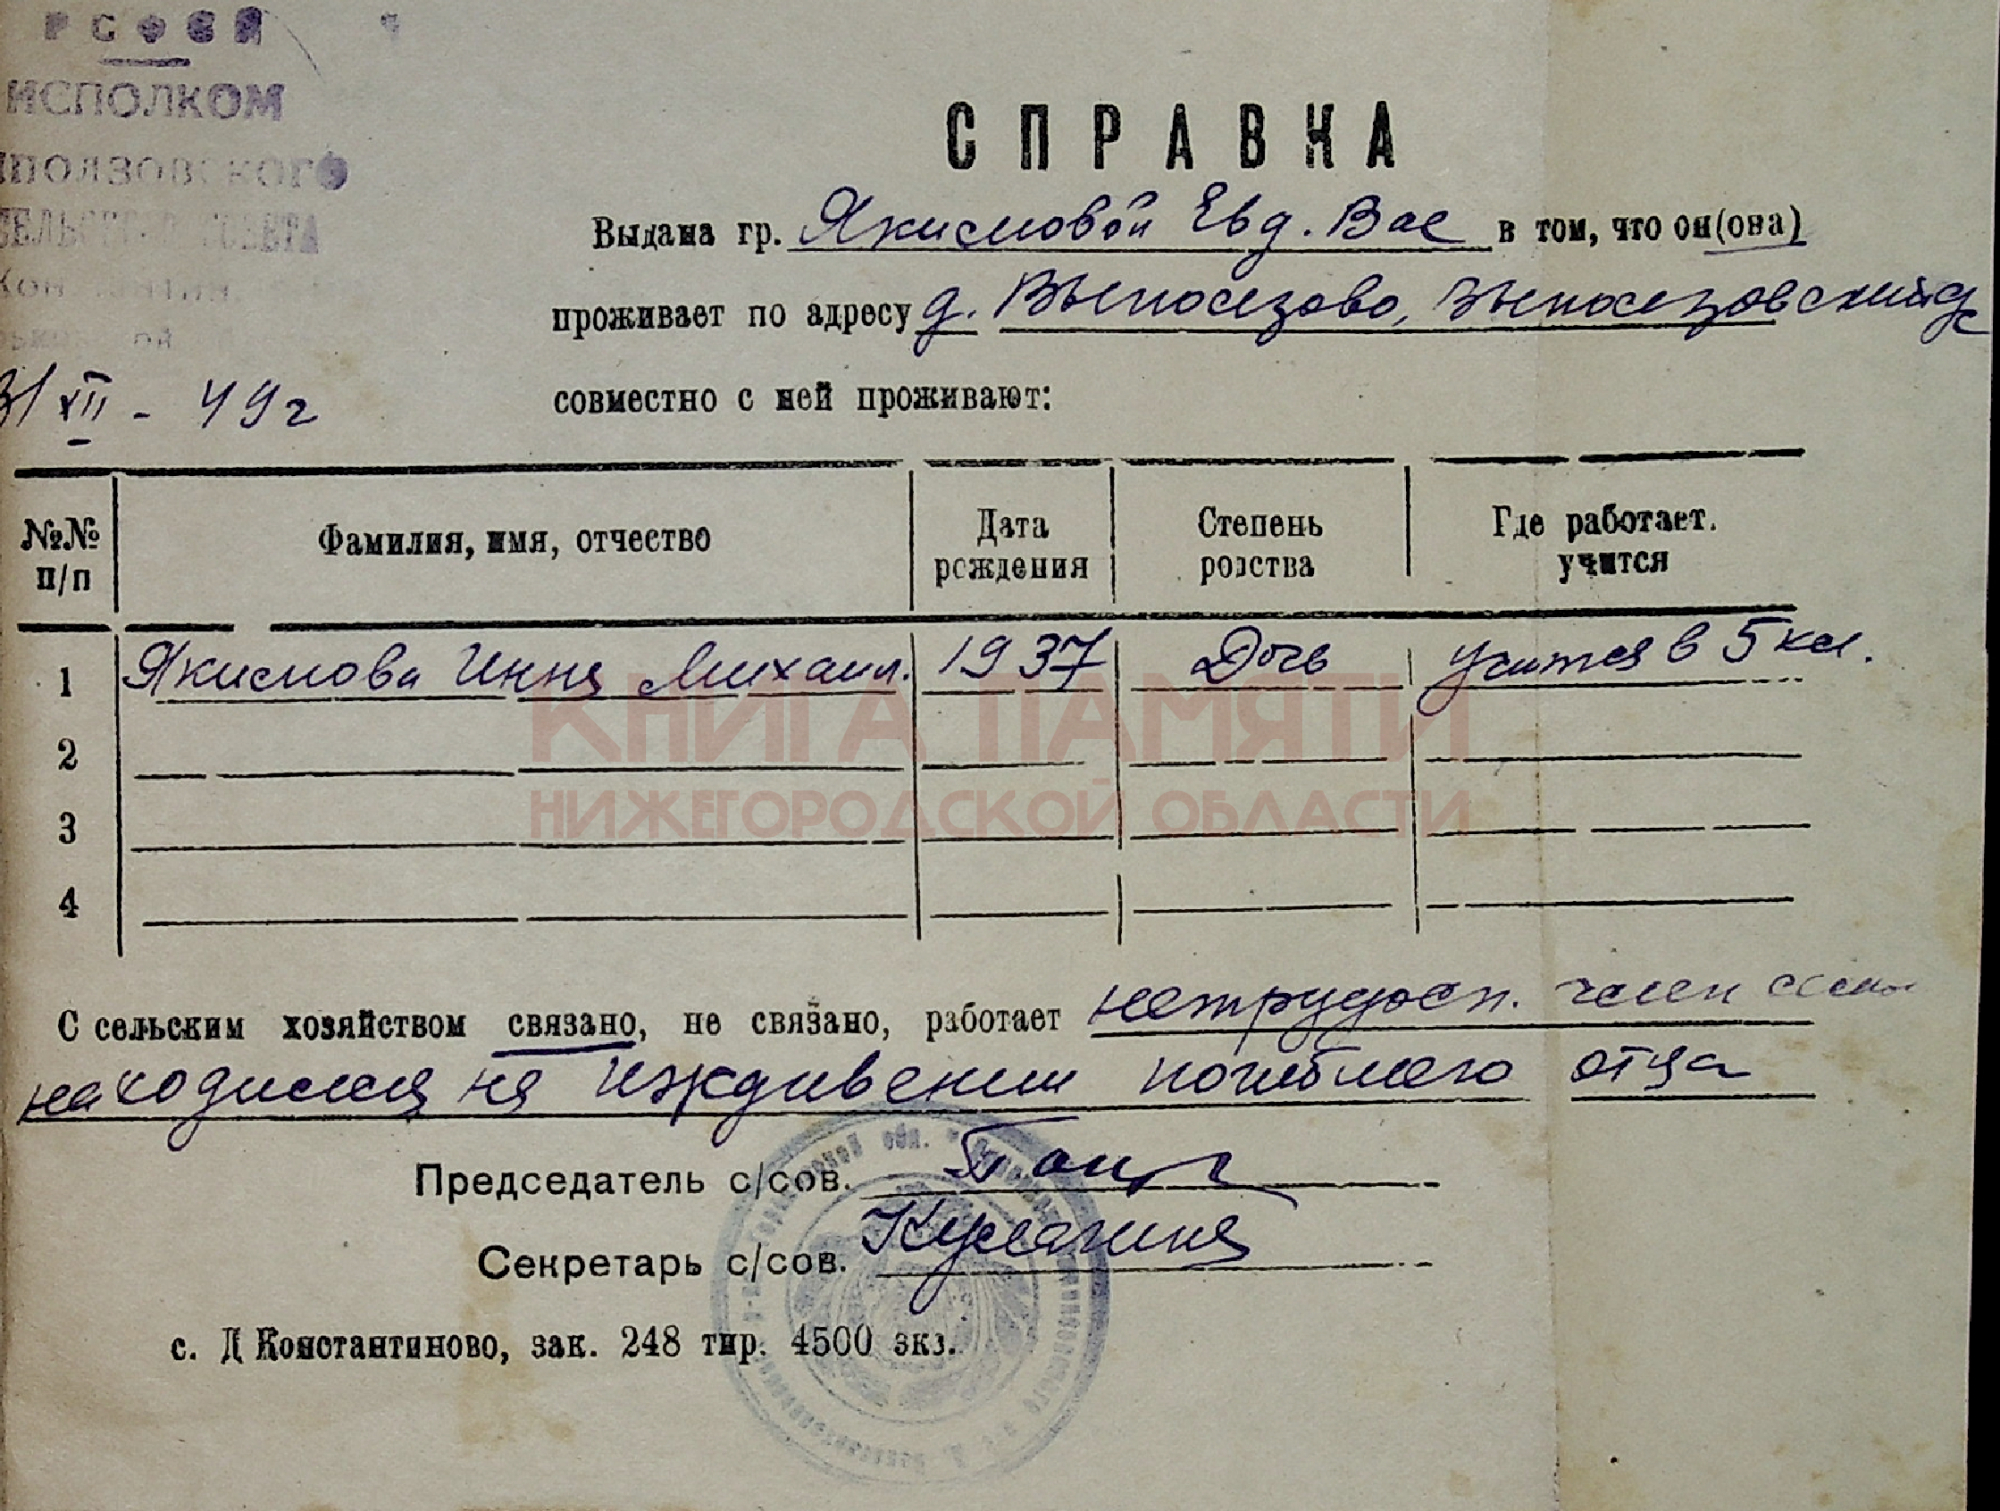 РСФСР
ИСПОЛКОМ
СПРАВКА
Выдана гр. Якимовой Евд. Вас в том, что он(она)
проживает по адресу д. Выползово, Выползовский с/с
31/XII - 49г
совместно с ней проживают:
№№ п/п Фамилия, имя, отчество Дата рождения Степень родства Где работает. учится
1 Якимова Инна Михаил. 1937 Дочь учится в 5 кл.
2
3
4
КНИГА ПАМЯТИ
НИЖЕГОРОДСКОЙ ОБЛАСТИ
С сельским хозяйством связано, не связано, работает нетрудосп. член семьи
находился на иждивении погибшего отца
Председатель с/сов.
Секретарь с/сов. Кулагина
с. Д Константиново, зак. 248 тир. 4500 экз.